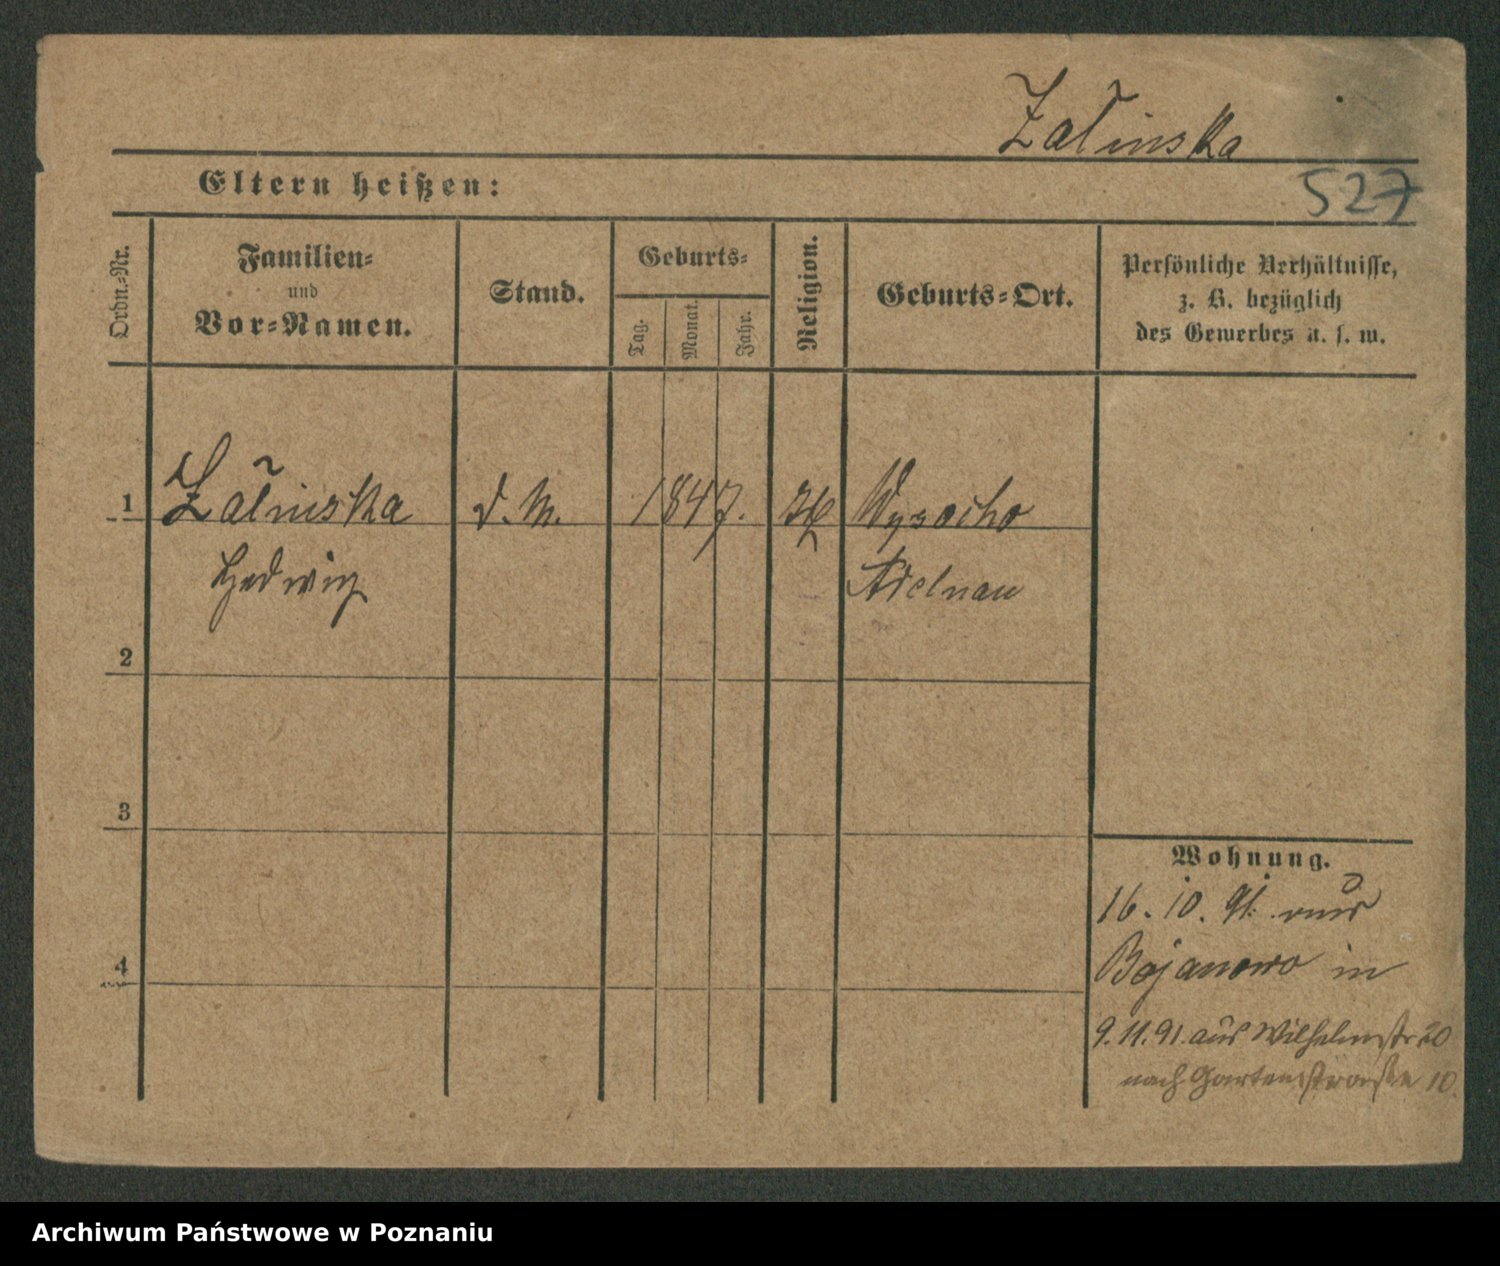 Załinska
527
Eltern heißen:
Ordn.-Nr.
Familien-
und
Vor-Namen.
Stand.
Geburts-
Tag.
Monat.
Jahr.
Religion.
Geburts-Ort.
Persönliche Verhältnisse,
z. B. bezüglich
des Gewerbes u. s. w.
1
Załinska
d. M.
1847.
Wysocko
Hedwig
Adelnau
2
3
4
Wohnung.
16. 10. 91. aus
Bojanowo in
9. 11. 91. aus Wilhelmstr 20
nach Gartenstraße 10.
Archiwum Państwowe w Poznaniu